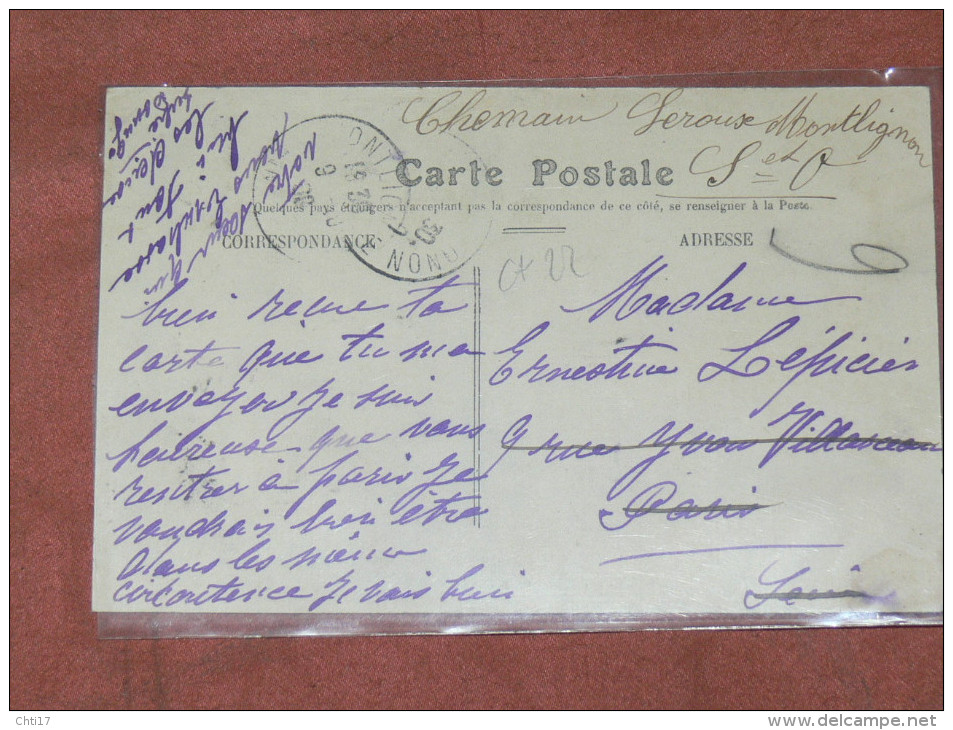 Chemain Leroux Montlignon
S et O
Carte Postale
Quelques pays étrangers n'acceptent pas la correspondance de ce côté, se renseigner à la Poste.
CORRESPONDANCE
ADRESSE
bien recue ta
carte que tu ma
envoyer je suis
heureuse que vous
rentrer à paris je
voudrais bien être
dans les même
circontence je vais bien
votre sœur qui
vous embrasse
Madame
Ernestine Lépicier
9 rue Yvon Villarceau
Paris
Seine
Chti17
www.delcampe.net